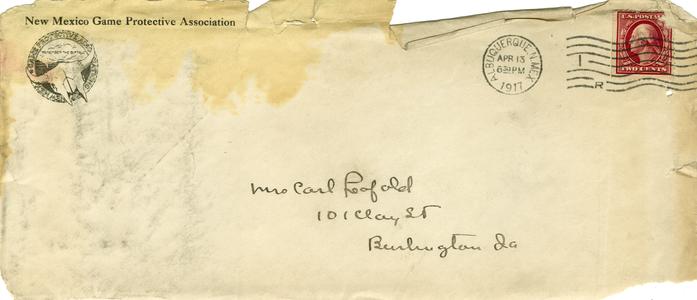 New Mexico Game Protective Association
REMEMBER THE BUFFALO
ALBUQUERQUE, N. MEX.
APR 13
6 30 PM
1917
1
R
U.S. POSTAGE
TWO CENTS
Mrs Carl Leopold
101 Clay St
Burlington Ia